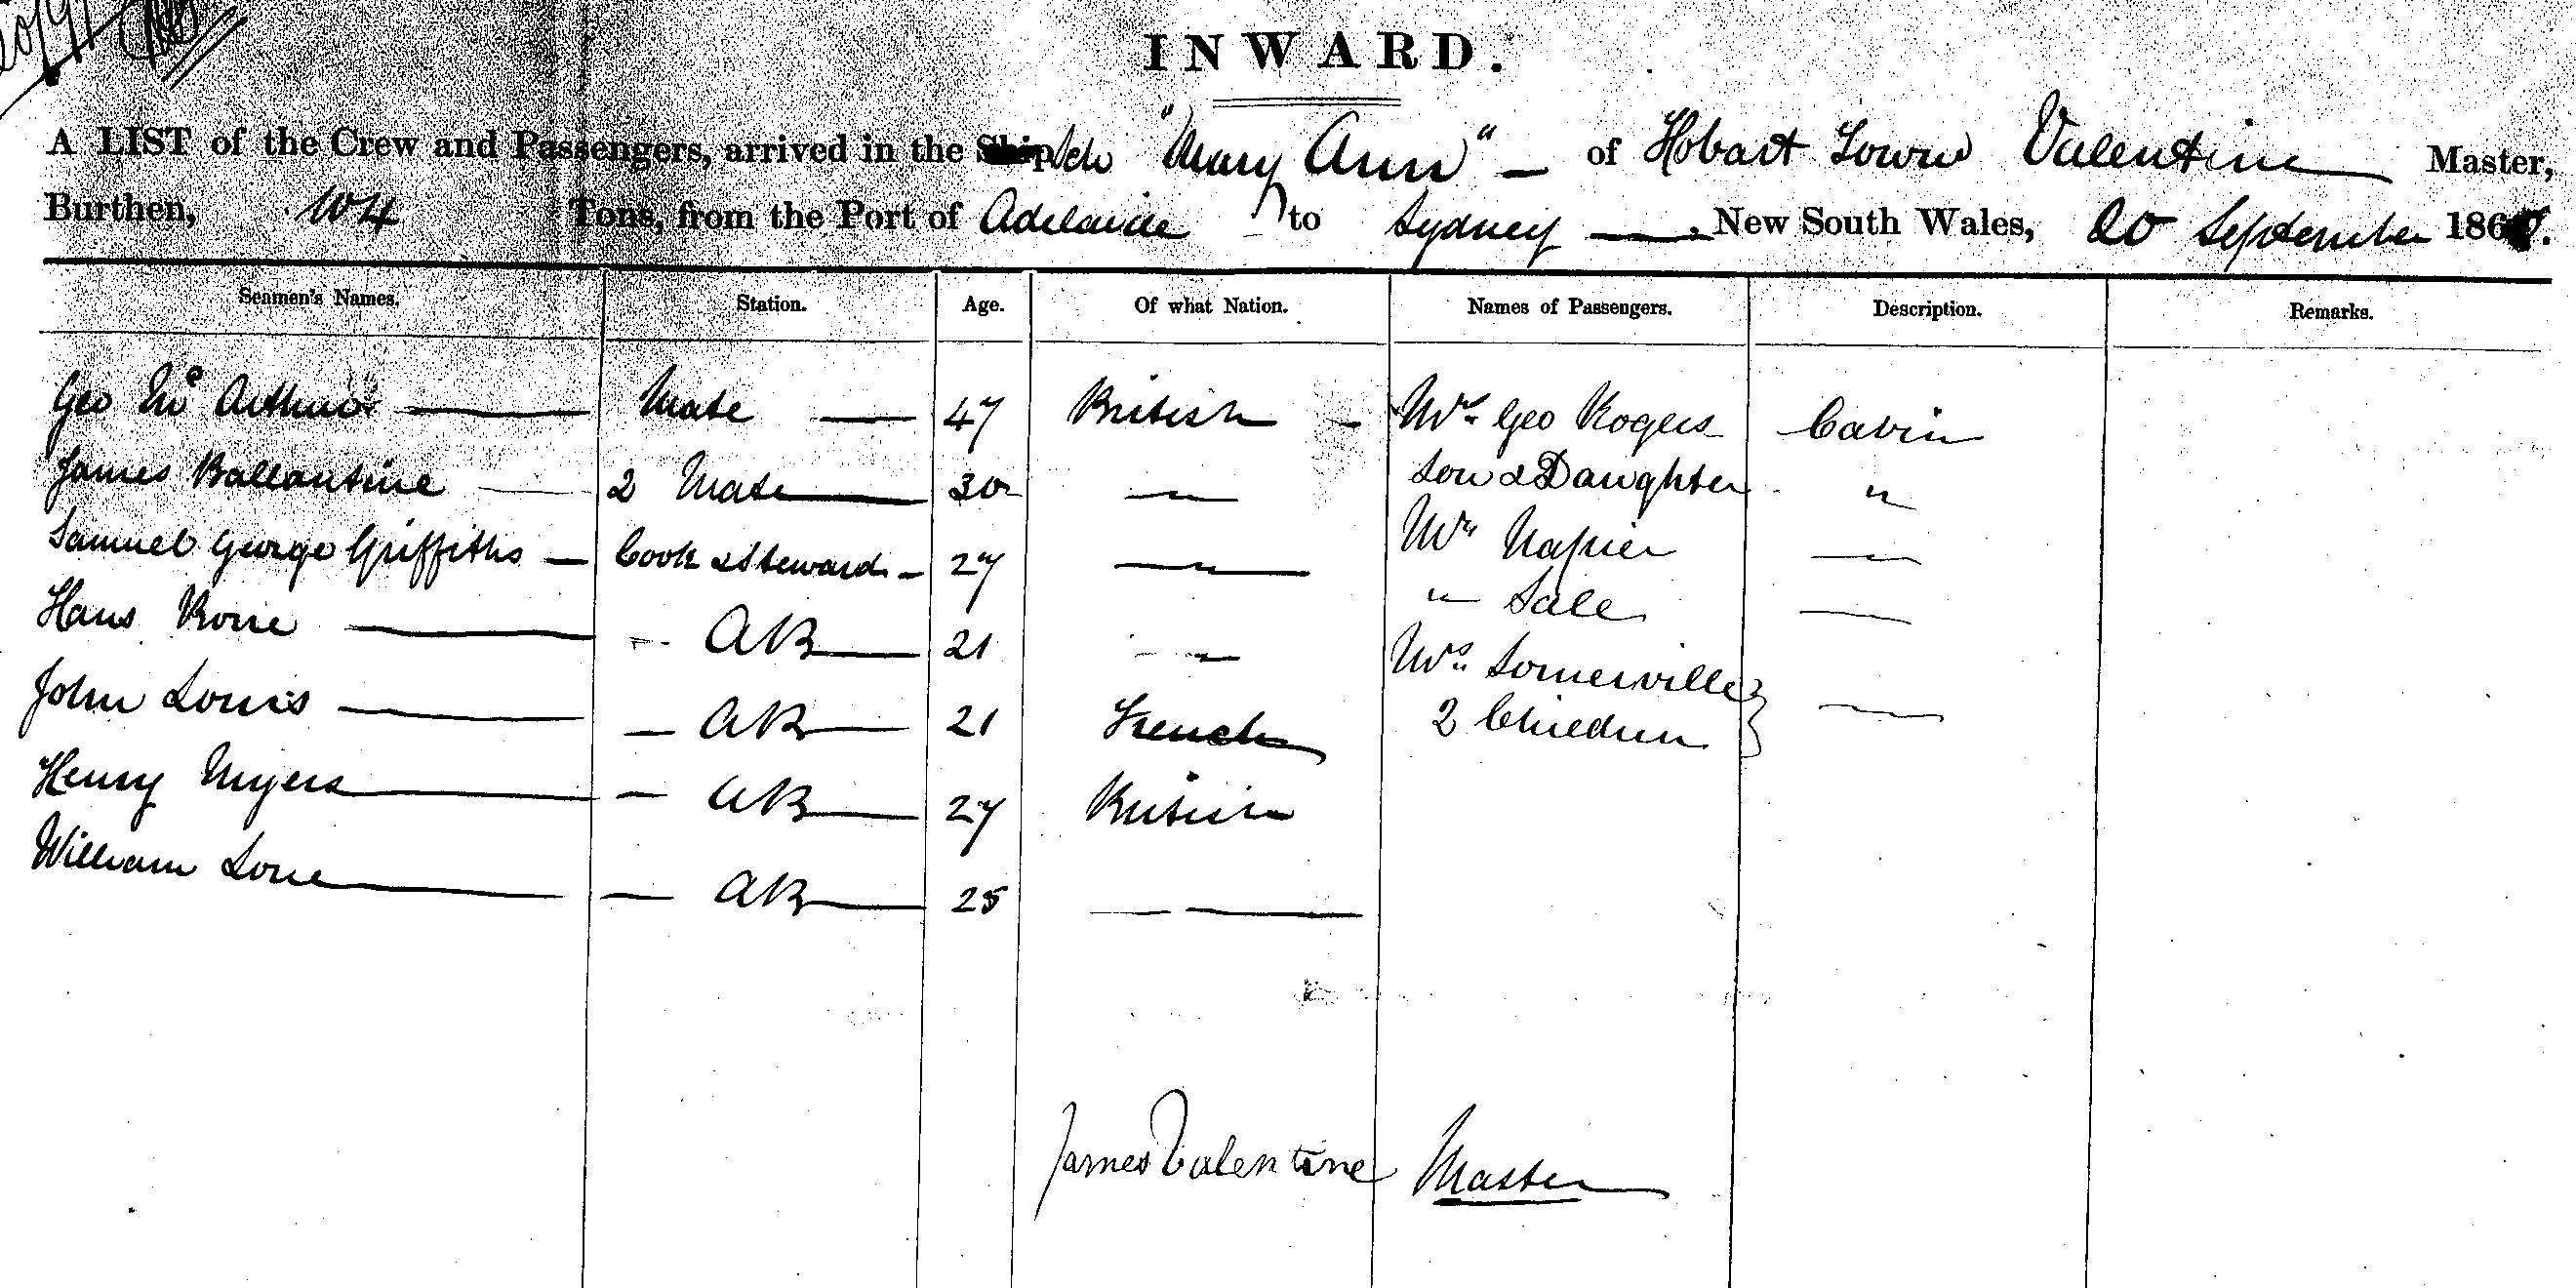 INWARD.
A LIST of the Crew and Passengers, arrived in the Ship Sch "Mary Ann" — of Hobart Town Valentine — Master,
Burthen, 104 Tons, from the Port of Adelaide to Sydney — New South Wales, 20 September 186
Seamen's Names. Station. Age. Of what Nation. Names of Passengers. Description. Remarks.
Geo Mc Arthur — Mate — 47 British — Mr Geo Rogers Cabin
James Ballantine — 2 Mate — 30 — " — Son & Daughter "
Samuel George Griffiths — Cook & Steward — 27 — " — Mr Napier — " —
Hans — AB — 21 — " — " Sale —
John Louis — AB — 21 French Mrs Somerville
2 Children } — " —
Henry Myers — AB — 27 British
William — AB — 25 — " —
James Valentine Master